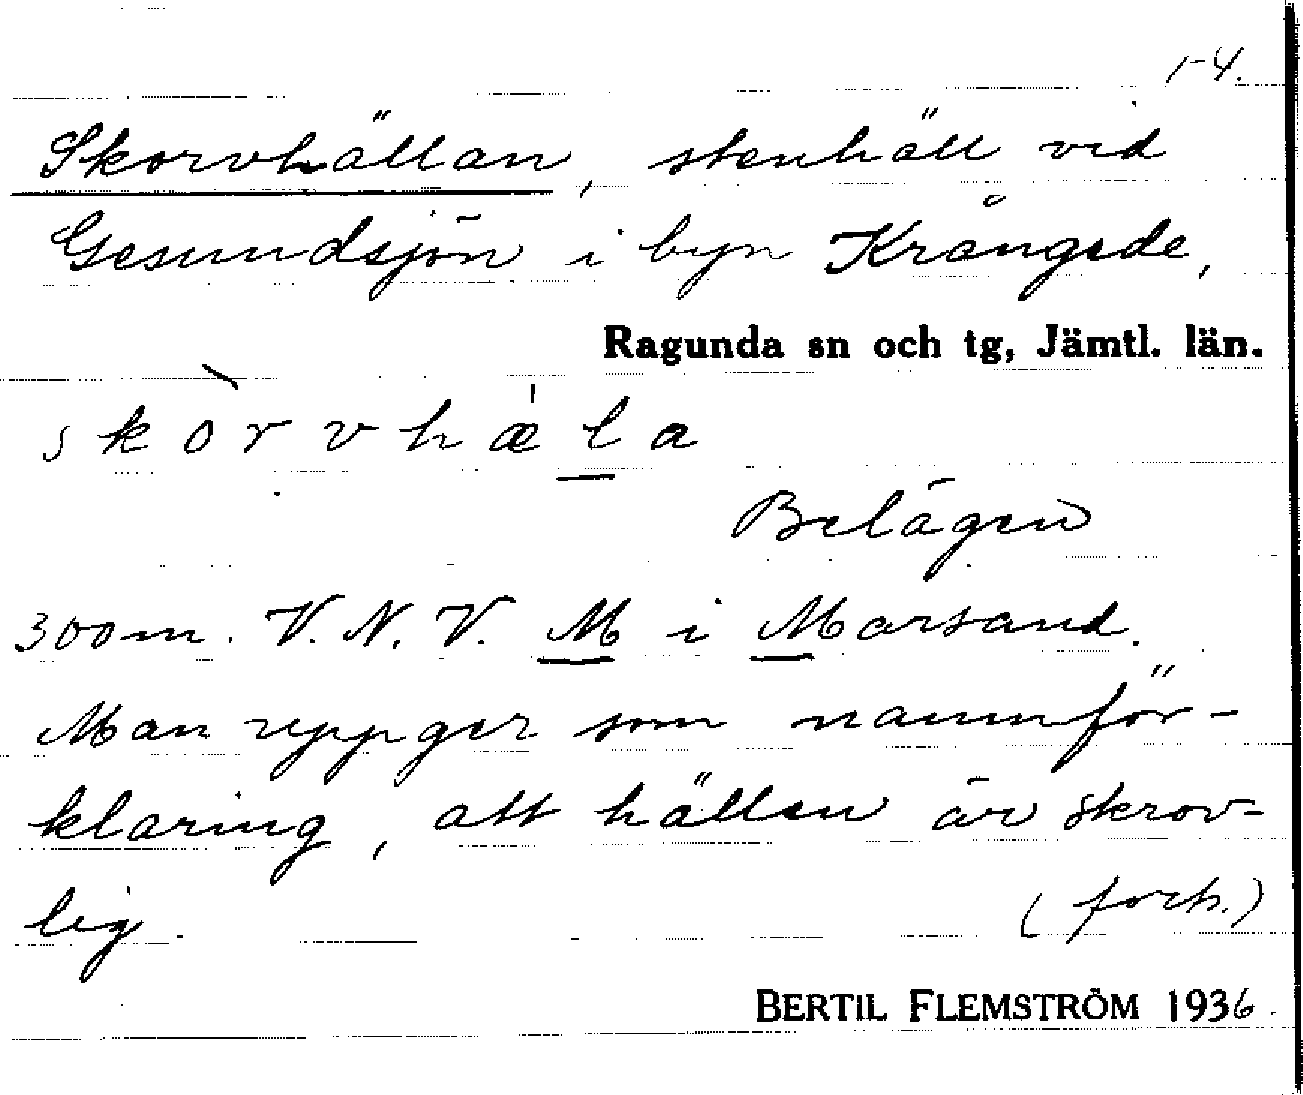 1-4.
Skorvhällan, stenhäll vid
Gesundsjön i byn Krångede,
Ragunda sn och tg, Jämtl. län.
skòrvhæ̍l̲a
Belägen
300 m. V.N.V. M i Marsand.
Man uppger som namnför-
klaring, att hällen är skrov-
lig.
(forts.)
BERTIL FLEMSTRÖM 1936.